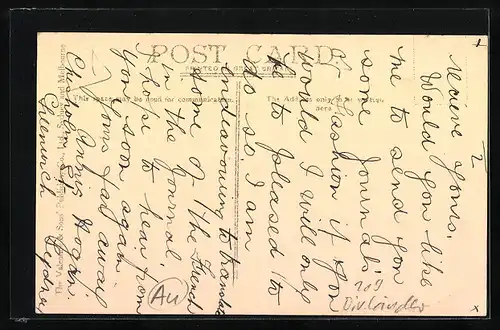 POST CARD
PRINTED IN GREAT BRITAIN
This space may be used for communication.
The Address only to be written here
The Valentine & Sons' Publishing Co. Ltd. Melbourne
2
receive yours.
Would you like
me to send you
some Journals
of Fashion if you
would I will only
be to pleased to
do so. I am
endeavouring to translate
some of the French
in the Journal.
I hope to hear from
you soon again
Yours far away
Hogan
St
Greenwich Sydney
AU